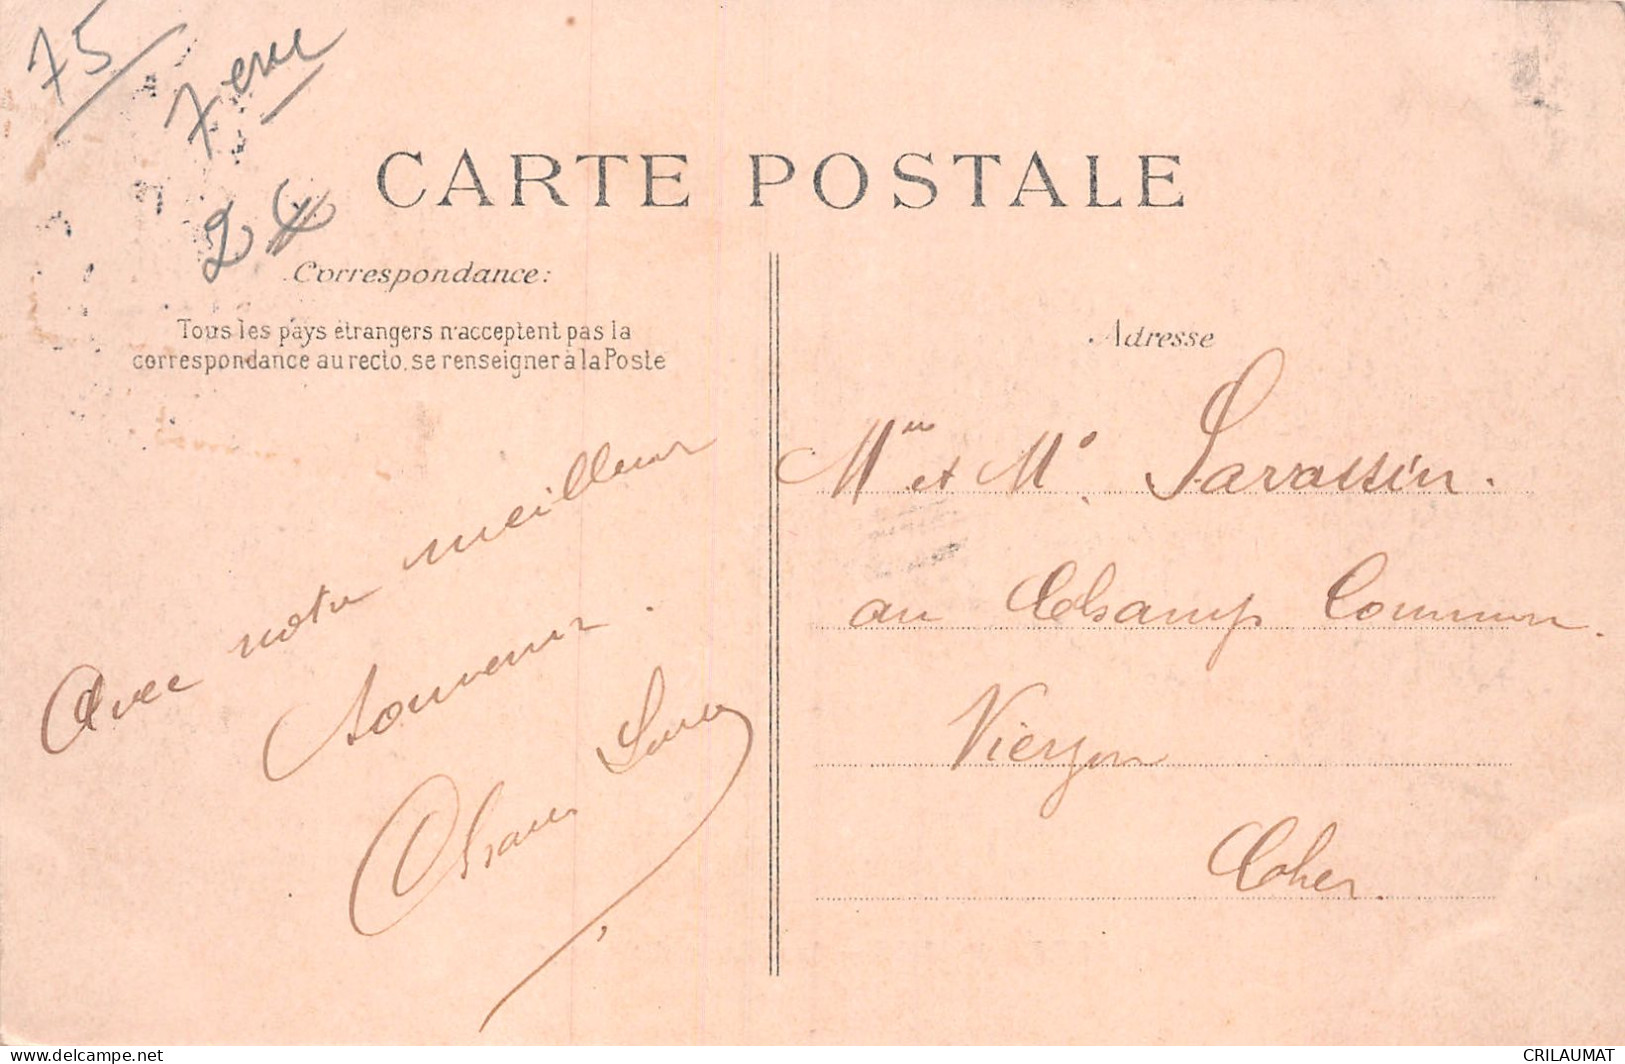 75
7eme
24
CARTE POSTALE
Correspondance:
Tous les pays étrangers n'acceptent pas la
correspondance au recto, se renseigner à la Poste
Avec notre meilleur
Souvenir.
Adresse
Mme et Mr Sarassin.
au Champ Commun.
Vierzon
Cher.
www.delcampe.net
CRILAUMAT